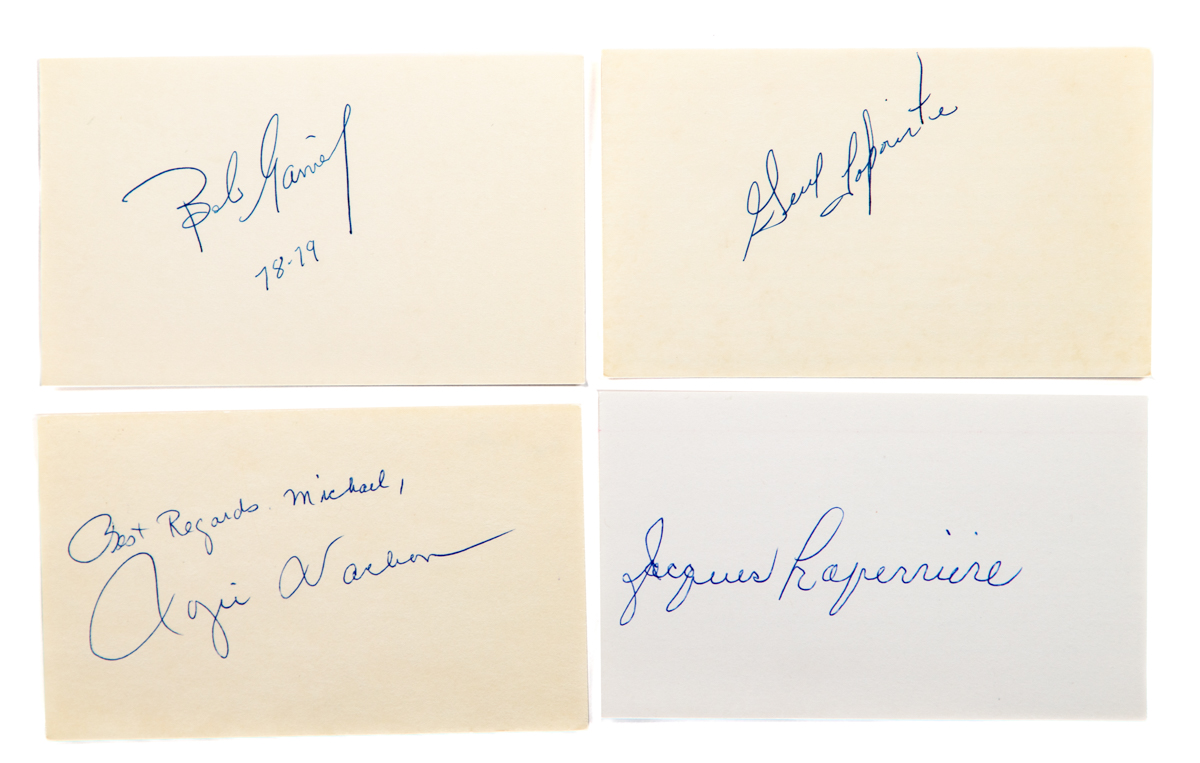 Bob Gainey
78-79
Guy Lapointe
Best Regards Michael,
Rogie Vachon
Jacques Laperriere